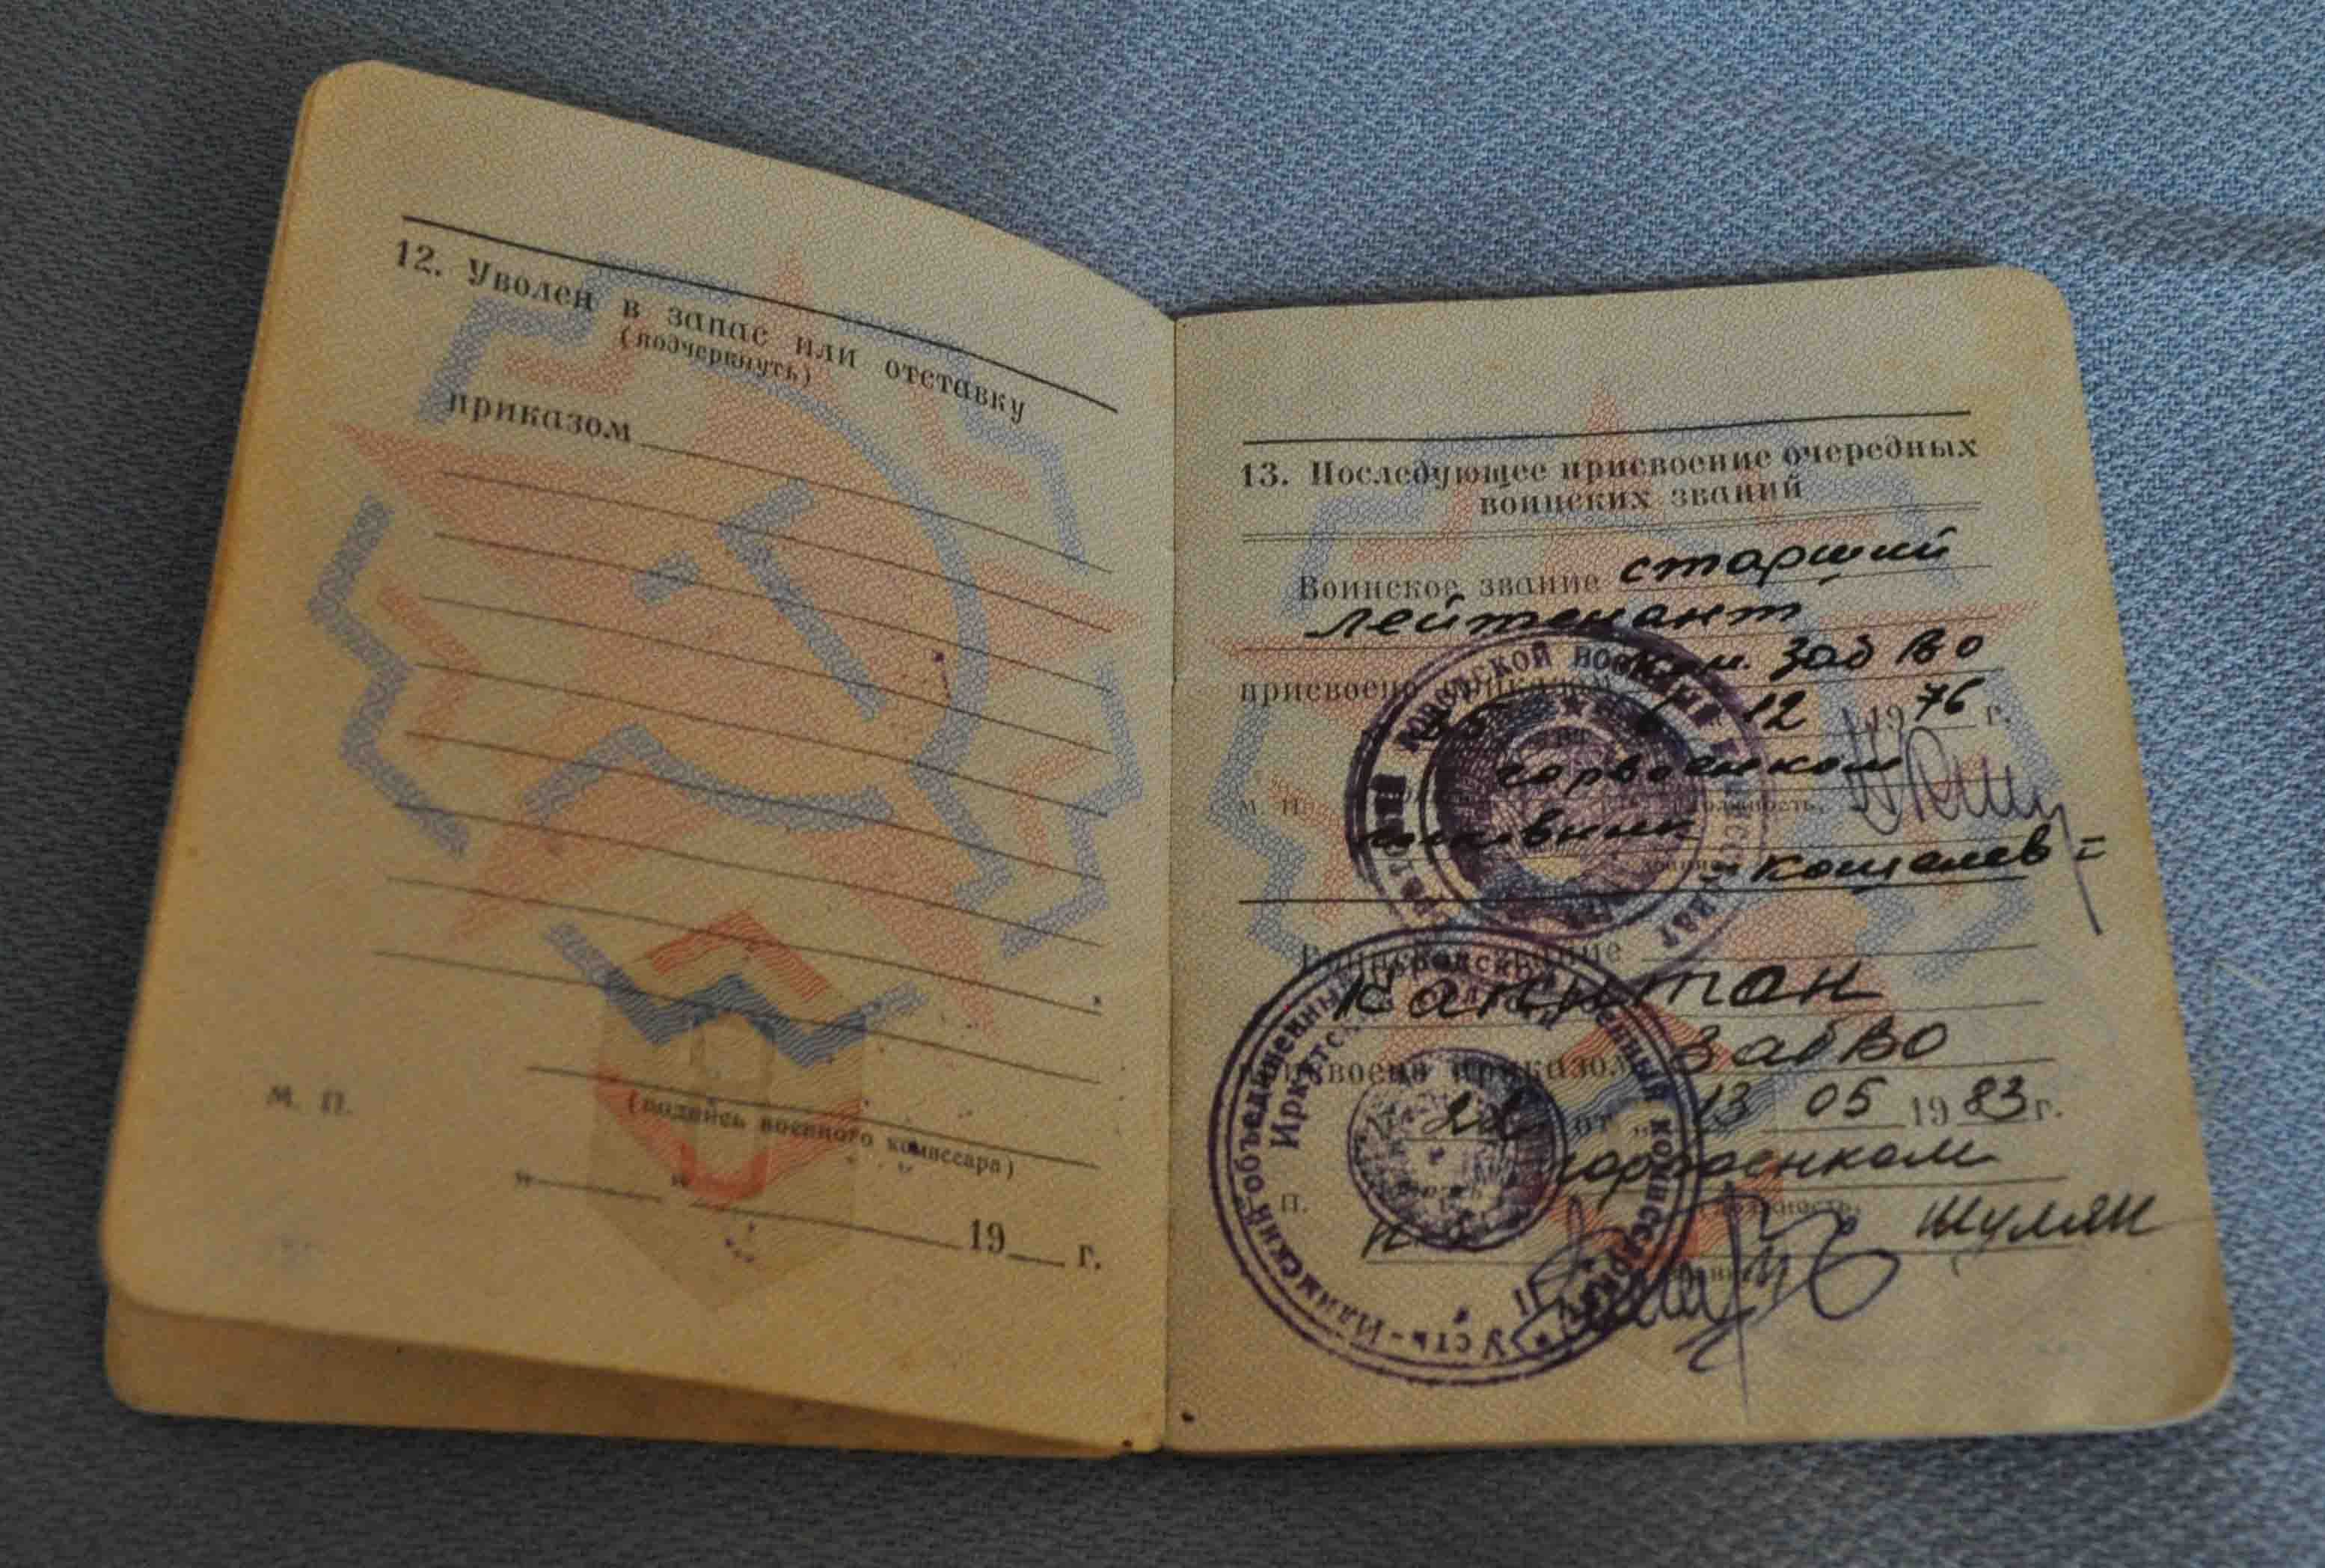 12. Уволен в запас или отставку
(подчеркнуть)
приказом
М. П.
(подпись военного комиссара)
"   "   19   г.
13. Последующее присвоение очередных
воинских званий
Воинское звание старший
лейтенант
присвоено приказом ком. ЗабВО
12 1976 г.
горвоенком
М. П. должность,
звание
= Кошелев =
Воинское звание
капитан
присвоено приказом ЗабВО
от " 13 05 1983 г.
горвоенком
П. должность,
п-к Шумян
звание
Усть-Илимский объединенный городской военный комиссариат
Иркутской